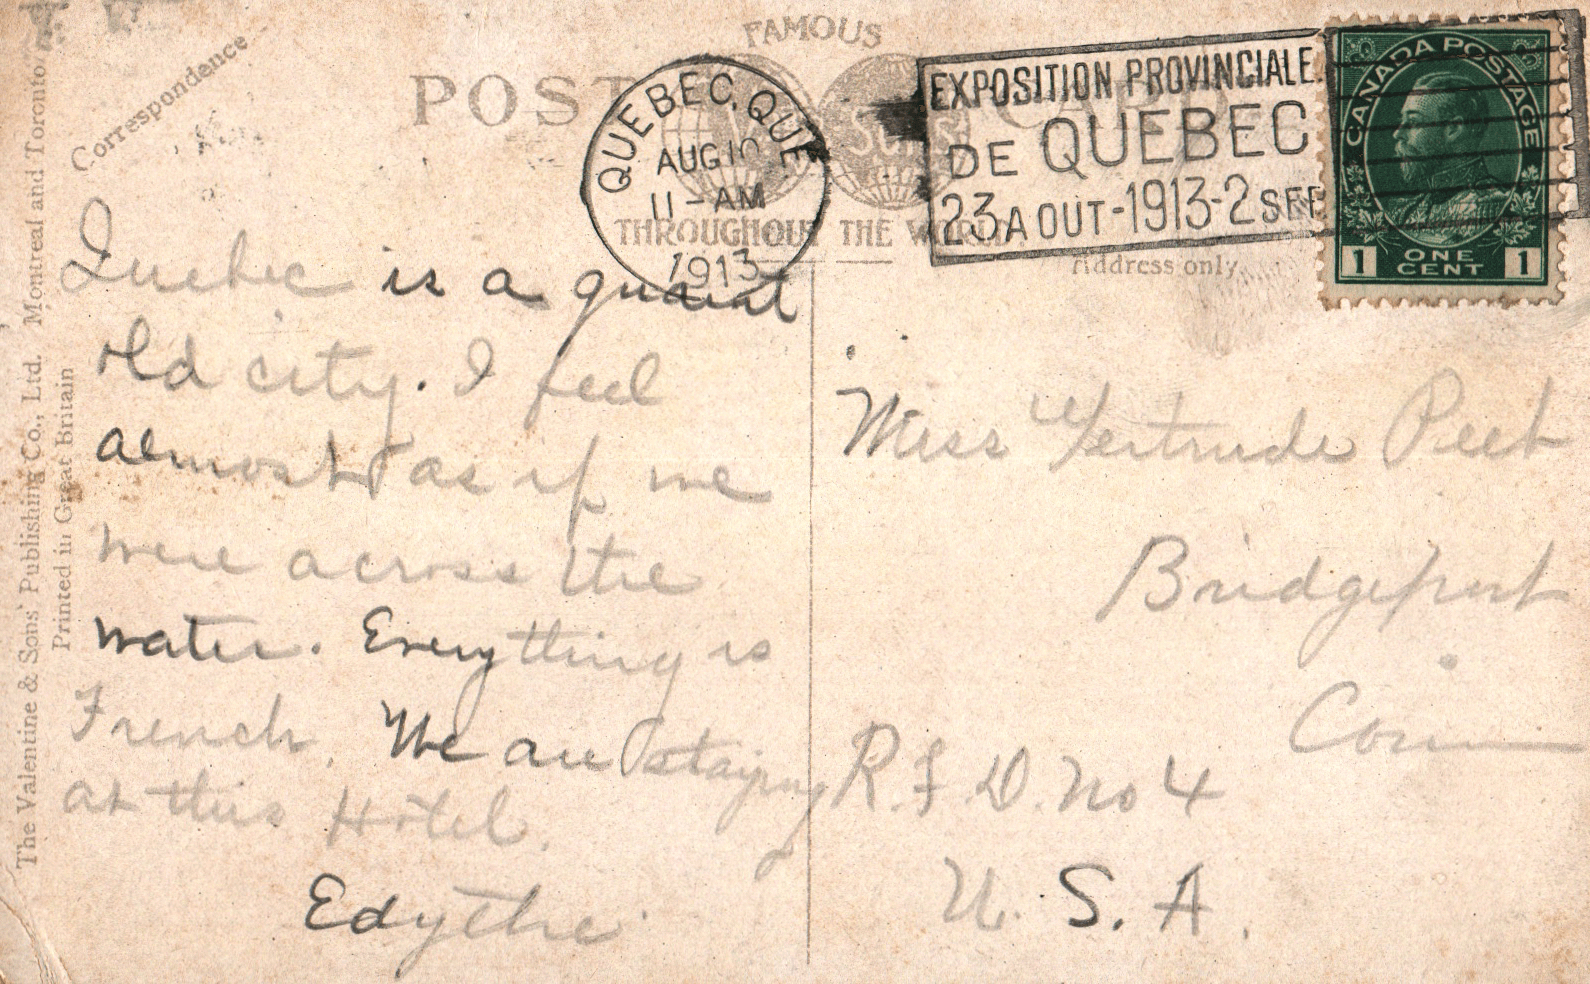 Correspondence
FAMOUS
POST CARD
THROUGHOUT THE WORLD
Address only
QUEBEC, QUE
AUG 10
11-AM
1913
EXPOSITION PROVINCIALE
DE QUEBEC
23 AOUT-1913-2 SEP
CANADA POSTAGE
1 ONE CENT 1
The Valentine & Sons' Publishing Co., Ltd. Montreal and Toronto
Printed in Great Britain
Quebec is a quaint
old city. I feel
almost as if we
were across the
water. Everything is
French. We are staying
at this Hotel.
Edythe
Miss Gertrude Peet
Bridgeport
Conn
R.F.D. No 4
U.S.A.